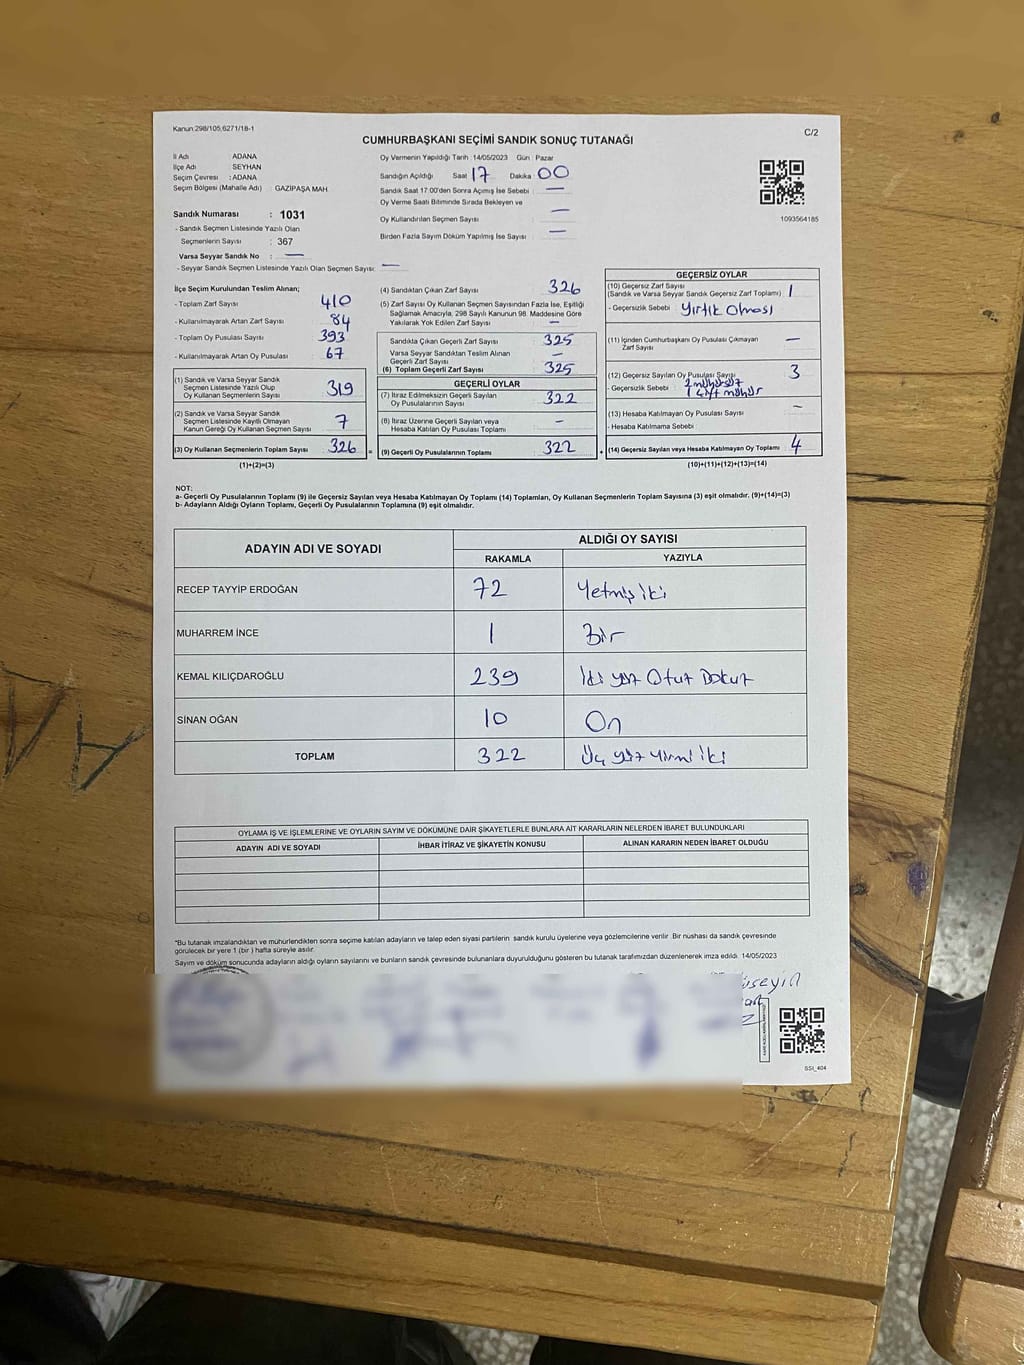 Kanun:298/105;6271/18-1
C/2
CUMHURBAŞKANI SEÇİMİ SANDIK SONUÇ TUTANAĞI
İl Adı : ADANA
İlçe Adı : SEYHAN
Seçim Çevresi : ADANA
Seçim Bölgesi (Mahalle Adı) : GAZİPAŞA MAH.
Sandık Numarası : 1031
- Sandık Seçmen Listesinde Yazılı Olan
Seçmenlerin Sayısı : 367
Varsa Seyyar Sandık No : —
- Seyyar Sandık Seçmen Listesinde Yazılı Olan Seçmen Sayısı: —
Oy Vermenin Yapıldığı Tarih :14/05/2023 Gün : Pazar
Sandığın Açıldığı Saat 17 Dakika 00
Sandık Saat 17:00'den Sonra Açımış İse Sebebi : —
Oy Verme Saati Bitiminde Sırada Bekleyen ve
Oy Kullandırılan Seçmen Sayısı : —
Birden Fazla Sayım Döküm Yapılmış İse Sayısı : —
1093564185
İlçe Seçim Kurulundan Teslim Alınan;
- Toplam Zarf Sayısı 410
- Kullanılmayarak Artan Zarf Sayısı 84
- Toplam Oy Pusulası Sayısı 393
- Kullanılmayarak Artan Oy Pusulası 67
(1) Sandık ve Varsa Seyyar Sandık
Seçmen Listesinde Yazılı Olup
Oy Kullanan Seçmenlerin Sayısı 319
(2) Sandık ve Varsa Seyyar Sandık
Seçmen Listesinde Kayıtlı Olmayan
Kanun Gereği Oy Kullanan Seçmen Sayısı 7
(3) Oy Kullanan Seçmenlerin Toplam Sayısı 326 =
(1)+(2)=(3)
(4) Sandıktan Çıkan Zarf Sayısı 326
(5) Zarf Sayısı Oy Kullanan Seçmen Sayısından Fazla İse, Eşitliği
Sağlamak Amacıyla, 298 Sayılı Kanunun 98. Maddesine Göre
Yakılarak Yok Edilen Zarf Sayısı —
Sandıkta Çıkan Geçerli Zarf Sayısı 325
Varsa Seyyar Sandıktan Teslim Alınan
Geçerli Zarf Sayısı —
(6) Toplam Geçerli Zarf Sayısı 325
GEÇERLİ OYLAR
(7) İtiraz Edilmeksizin Geçerli Sayılan
Oy Pusulalarının Sayısı 322
(8) İtiraz Üzerine Geçerli Sayılan veya
Hesaba Katılan Oy Pusulası Toplamı —
(9) Geçerli Oy Pusulalarının Toplamı 322 +
GEÇERSİZ OYLAR
(10) Geçersiz Zarf Sayısı
(Sandık ve Varsa Seyyar Sandık Geçersiz Zarf Toplamı) 1
- Geçersizlik Sebebi : Yırtık Olması
(11) İçinden Cumhurbaşkanı Oy Pusulası Çıkmayan
Zarf Sayısı —
(12) Geçersiz Sayılan Oy Pusulası Sayısı 3
- Geçersizlik Sebebi : 2 mühürsüz
1 çift mühür
(13) Hesaba Katılmayan Oy Pusulası Sayısı —
- Hesaba Katılmama Sebebi :
(14) Geçersiz Sayılan veya Hesaba Katılmayan Oy Toplamı 4
(10)+(11)+(12)+(13)=(14)
NOT:
a- Geçerli Oy Pusulalarının Toplamı (9) ile Geçersiz Sayılan veya Hesaba Katılmayan Oy Toplamı (14) Toplamları, Oy Kullanan Seçmenlerin Toplam Sayısına (3) eşit olmalıdır. (9)+(14)=(3)
b- Adayların Aldığı Oyların Toplamı, Geçerli Oy Pusulalarının Toplamına (9) eşit olmalıdır.
ADAYIN ADI VE SOYADI ALDIĞI OY SAYISI
RAKAMLA YAZIYLA
RECEP TAYYİP ERDOĞAN 72 Yetmiş iki
MUHARREM İNCE 1 Bir
KEMAL KILIÇDAROĞLU 239 İki yüz Otuz Dokuz
SİNAN OĞAN 10 On
TOPLAM 322 Üç yüz yirmi iki
OYLAMA İŞ VE İŞLEMLERİNE VE OYLARIN SAYIM VE DÖKÜMÜNE DAİR ŞİKAYETLERLE BUNLARA AİT KARARLARIN NELERDEN İBARET BULUNDUKLARI
ADAYIN ADI VE SOYADI İHBAR İTİRAZ VE ŞİKAYETİN KONUSU ALINAN KARARIN NEDEN İBARET OLDUĞU
*Bu tutanak imzalandıktan ve mühürlendikten sonra seçime katılan adayların ve talep eden siyasi partilerin sandık kurulu üyelerine veya gözlemcilerine verilir. Bir nüshası da sandık çevresinde
görülecek bir yere 1 (bir ) hafta süreyle asılır.
Sayım ve döküm sonucunda adayların aldığı oyların sayılarını ve bunların sandık çevresinde bulunanlara duyurulduğunu gösteren bu tutanak tarafımızdan düzenlenerek imza edildi. 14/05/2023
SSI_404